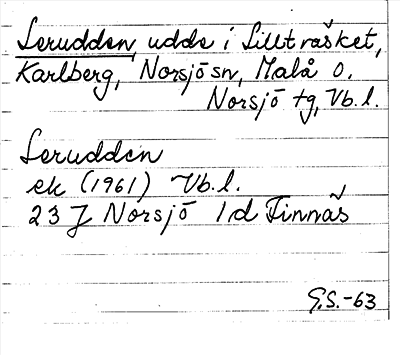 Lerudden, udde i Lillträsket,
Karlberg, Norsjö sn, Malå o.
Norsjö tg, Vb.l.
Lerudden
ek (1961) Vb.l.
23 J Norsjö 1d Finnäs
G.S.-63